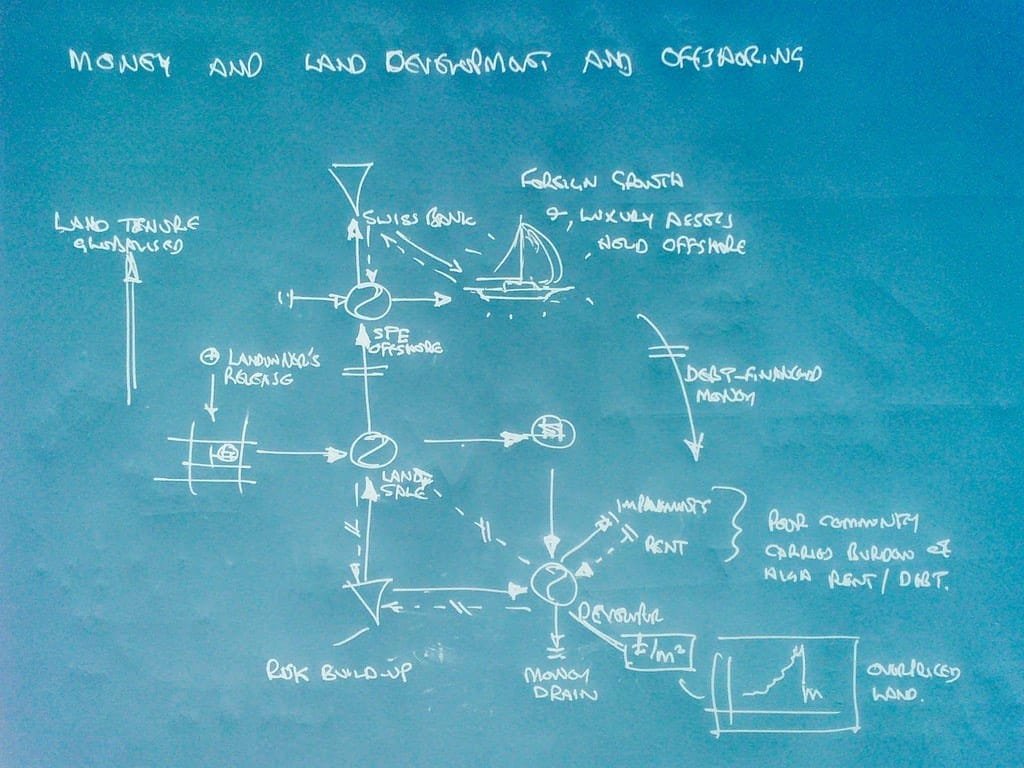 MONEY AND LAND DEVELOPMENT AND OFFSHORING
FOREIGN GROWTH
& LUXURY ASSETS
HELD OFFSHORE
LAND TENURE
GLOBALISED
SWISS BANK
SPE
OFFSHORE
LANDOWNER'S
RELEASE
DEBT-FINANCED
MONEY
LAND
SALE
IMPAIRMENTS
RENT
POOR COMMUNITY
CARRIES BURDEN of
HIGH RENT/DEBT.
DEVELOPER
£/m²
RISK BUILD-UP
MONEY
DRAIN
OVERPRICED
LAND.